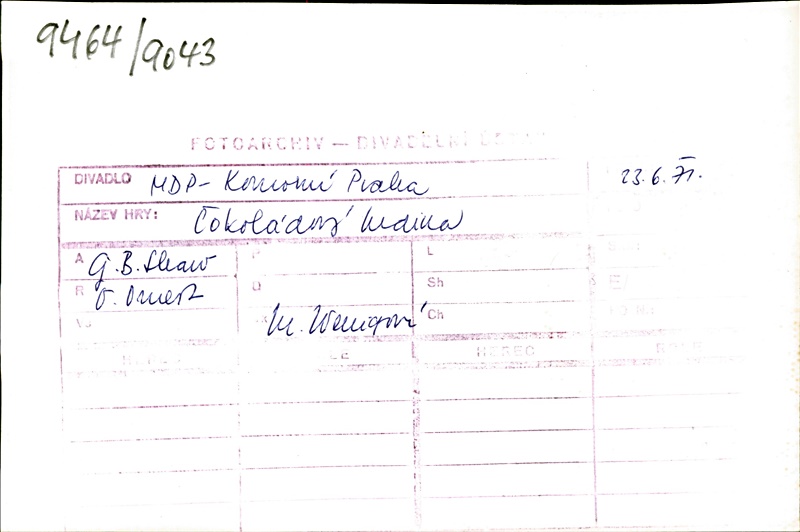 9464/9043
FOTOARCHIV — DIVADELNÍ ÚSTAV
DIVADLO MDP - Komorní Praha
23.6.71.
NÁZEV HRY: Čokoládový hrdina
A G. B. Shaw
P
L
R O. Ornest
D
Sh
M. Wenigová
Ch
HEREC
HEREC